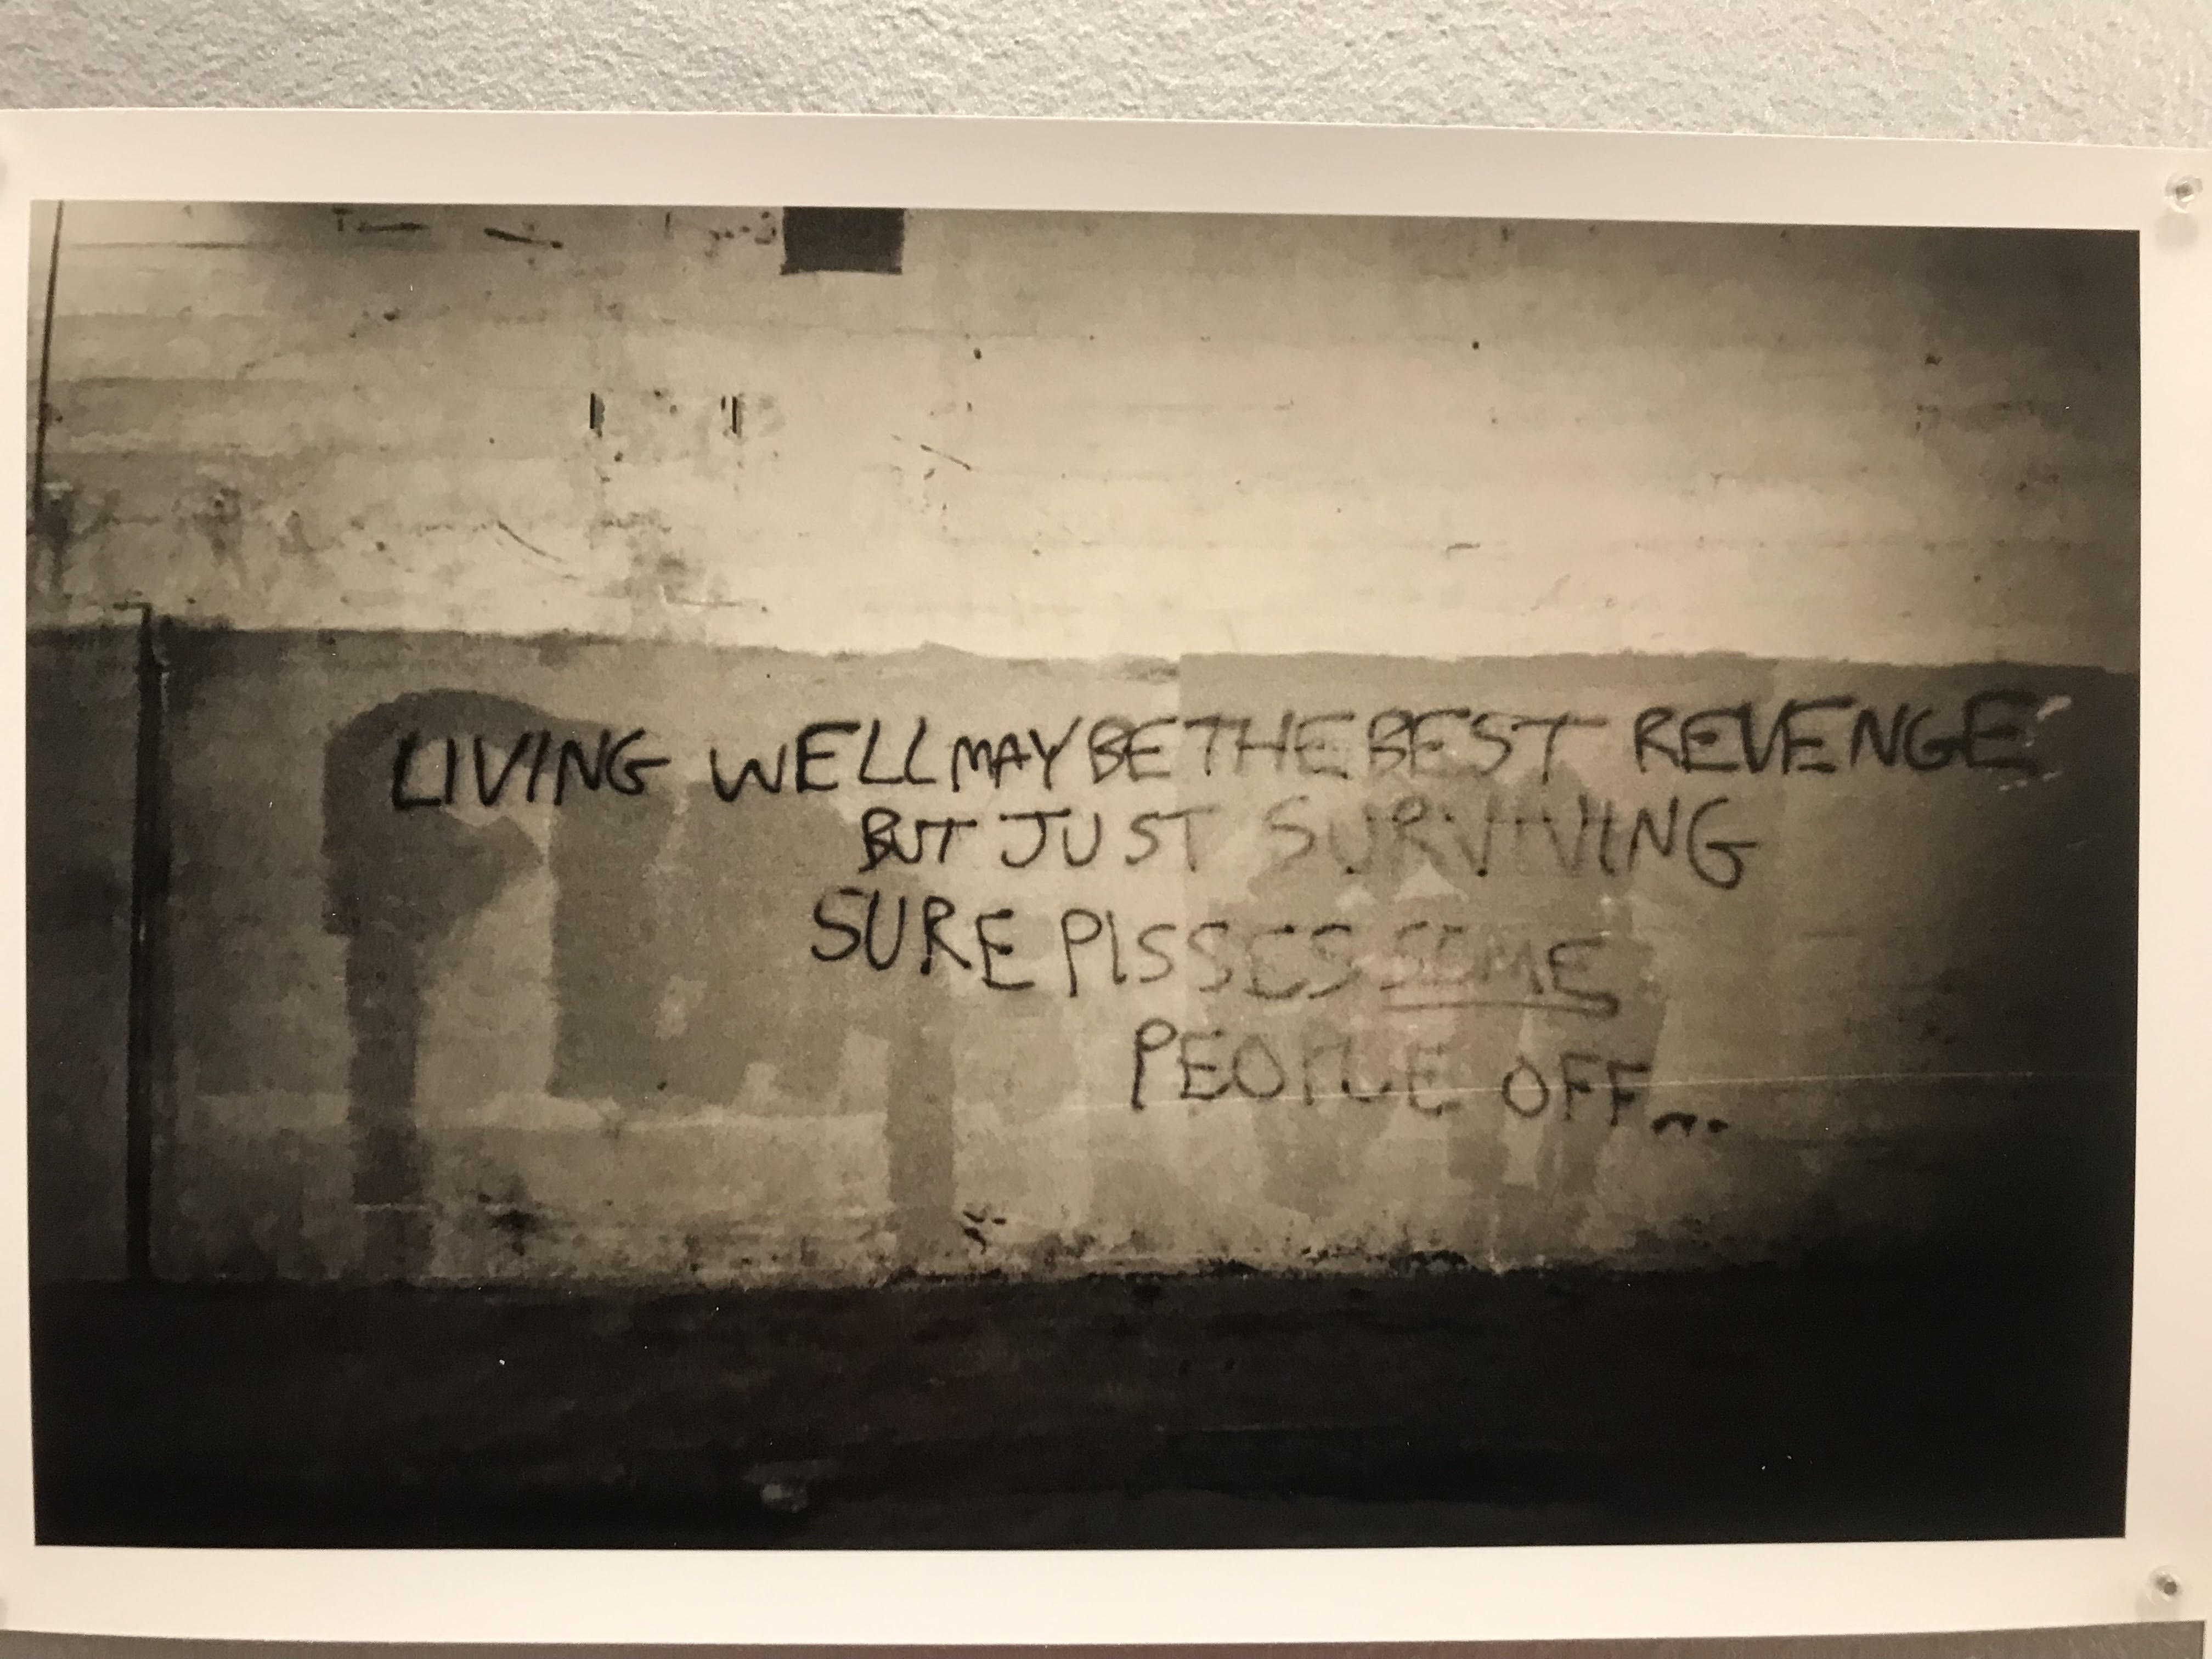 LIVING WELL MAY BE THE BEST REVENGE
BUT JUST SURVIVING
SURE PISSES SOME
PEOPLE OFF...